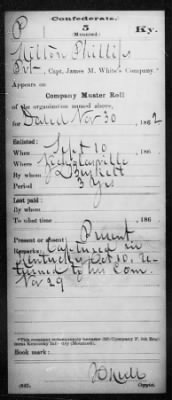 Confederate.
P 5 Ky.
(Mounted)
Milton Phillips
Pvt, Capt. James M. White's Company.*
Appears on
Company Muster Roll
of the organization named above,
for Dated Nov 30, 1862
Enlisted:
When Sept 10, 186
Where
By whom J. Burkett
Period 3 yrs
Last paid:
By whom
To what time , 186
Present or absent? Present
Remarks: Captured in
Kentucky Oct 10. Re-
turned to his Com.
Nov 29
*This company subsequently became
Book mark:
(642) Copyist.